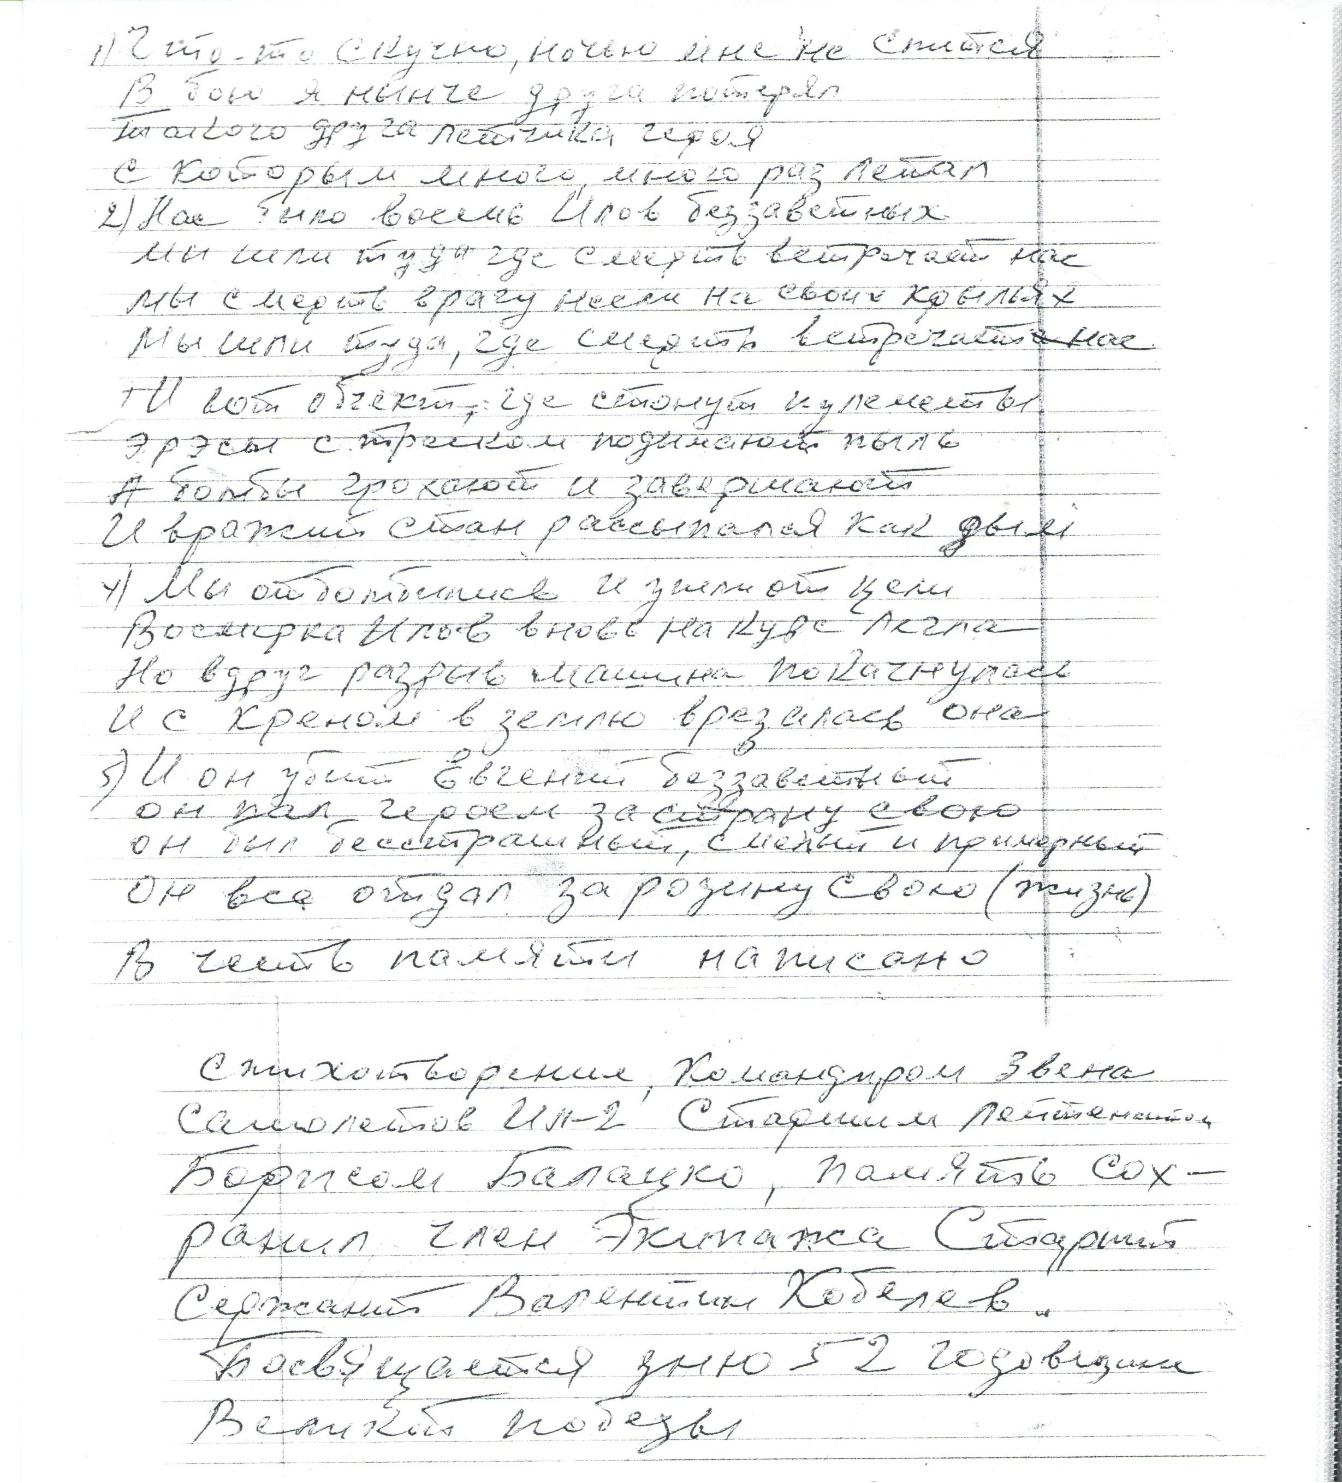 1) Что-то скучно, ночью мне не спится
В бою я нынче друга потерял
Такого друга летчика героя
С которым много, много раз летал
2) Нас было восемь Илов беззаветных
Мы шли туда где смерть встречает нас
Мы смерть врагу несли на своих крыльях
Мы шли туда, где смерть встречает нас
И вот объект, где стонут пулеметы
Эрэсы с треском поднимают пыль
А бомбы грохают и завершают
И вражий стан рассыпался как дым
4) Мы отбомбились и ушли от цели
Восмерка Илов вновь на курс легла
Но вдруг разрыв машина покачнулась
И с креном в землю врезалась она
5) И он убит Евгений беззаветный
Он пал героем за страну свою
Он был бесстрашный, смелый и примерный
Он все отдал за родину свою (жизнь)
В честь памяти написано
Стихотворение, Командиром Звена
Самолетов Ил-2 Старшим лейтенантом
Борисом Балацко, память сох-
ранил член Экипажа Старший
Сержант Валентин Кобелев.
Посвящается дню 52 годовщине
Великой победы